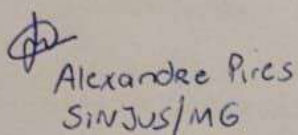 Alexandre Pires
SINJUS/MG